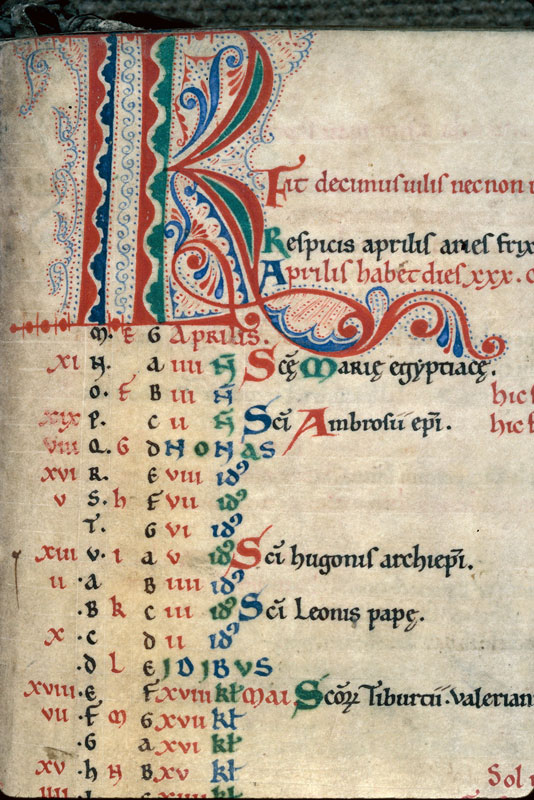 KL
Fit decimus uilis necnon
Respicis aprilis aries frix
Aprilis habēt dies xxx.
M. E G Aprilis.
XI N. a IIII N̄ Sc̄ę Marię egyptiacę.
O. F B III N̄ hic
XIX P. c II N̄ Sc̄i Ambrosii ep̄i. hic
VIII Q. G d NONAS
XVI R. E VIII id
V S. h F VII id
T. G VI id
XIII V. I a V id Sc̄i hugonis archiep̄i.
II .a B IIII id
.B K c III id Sc̄i Leonis papę.
X .c d II id
.d L E IDIBVS
XVIII .E F XVIII kł MAI Scōꝝ Tiburtii. Valerian
VII .F M G XVII kł
.G a XVI kł
XV .h N B XV kł Sol
IIII .I c XIIII kł